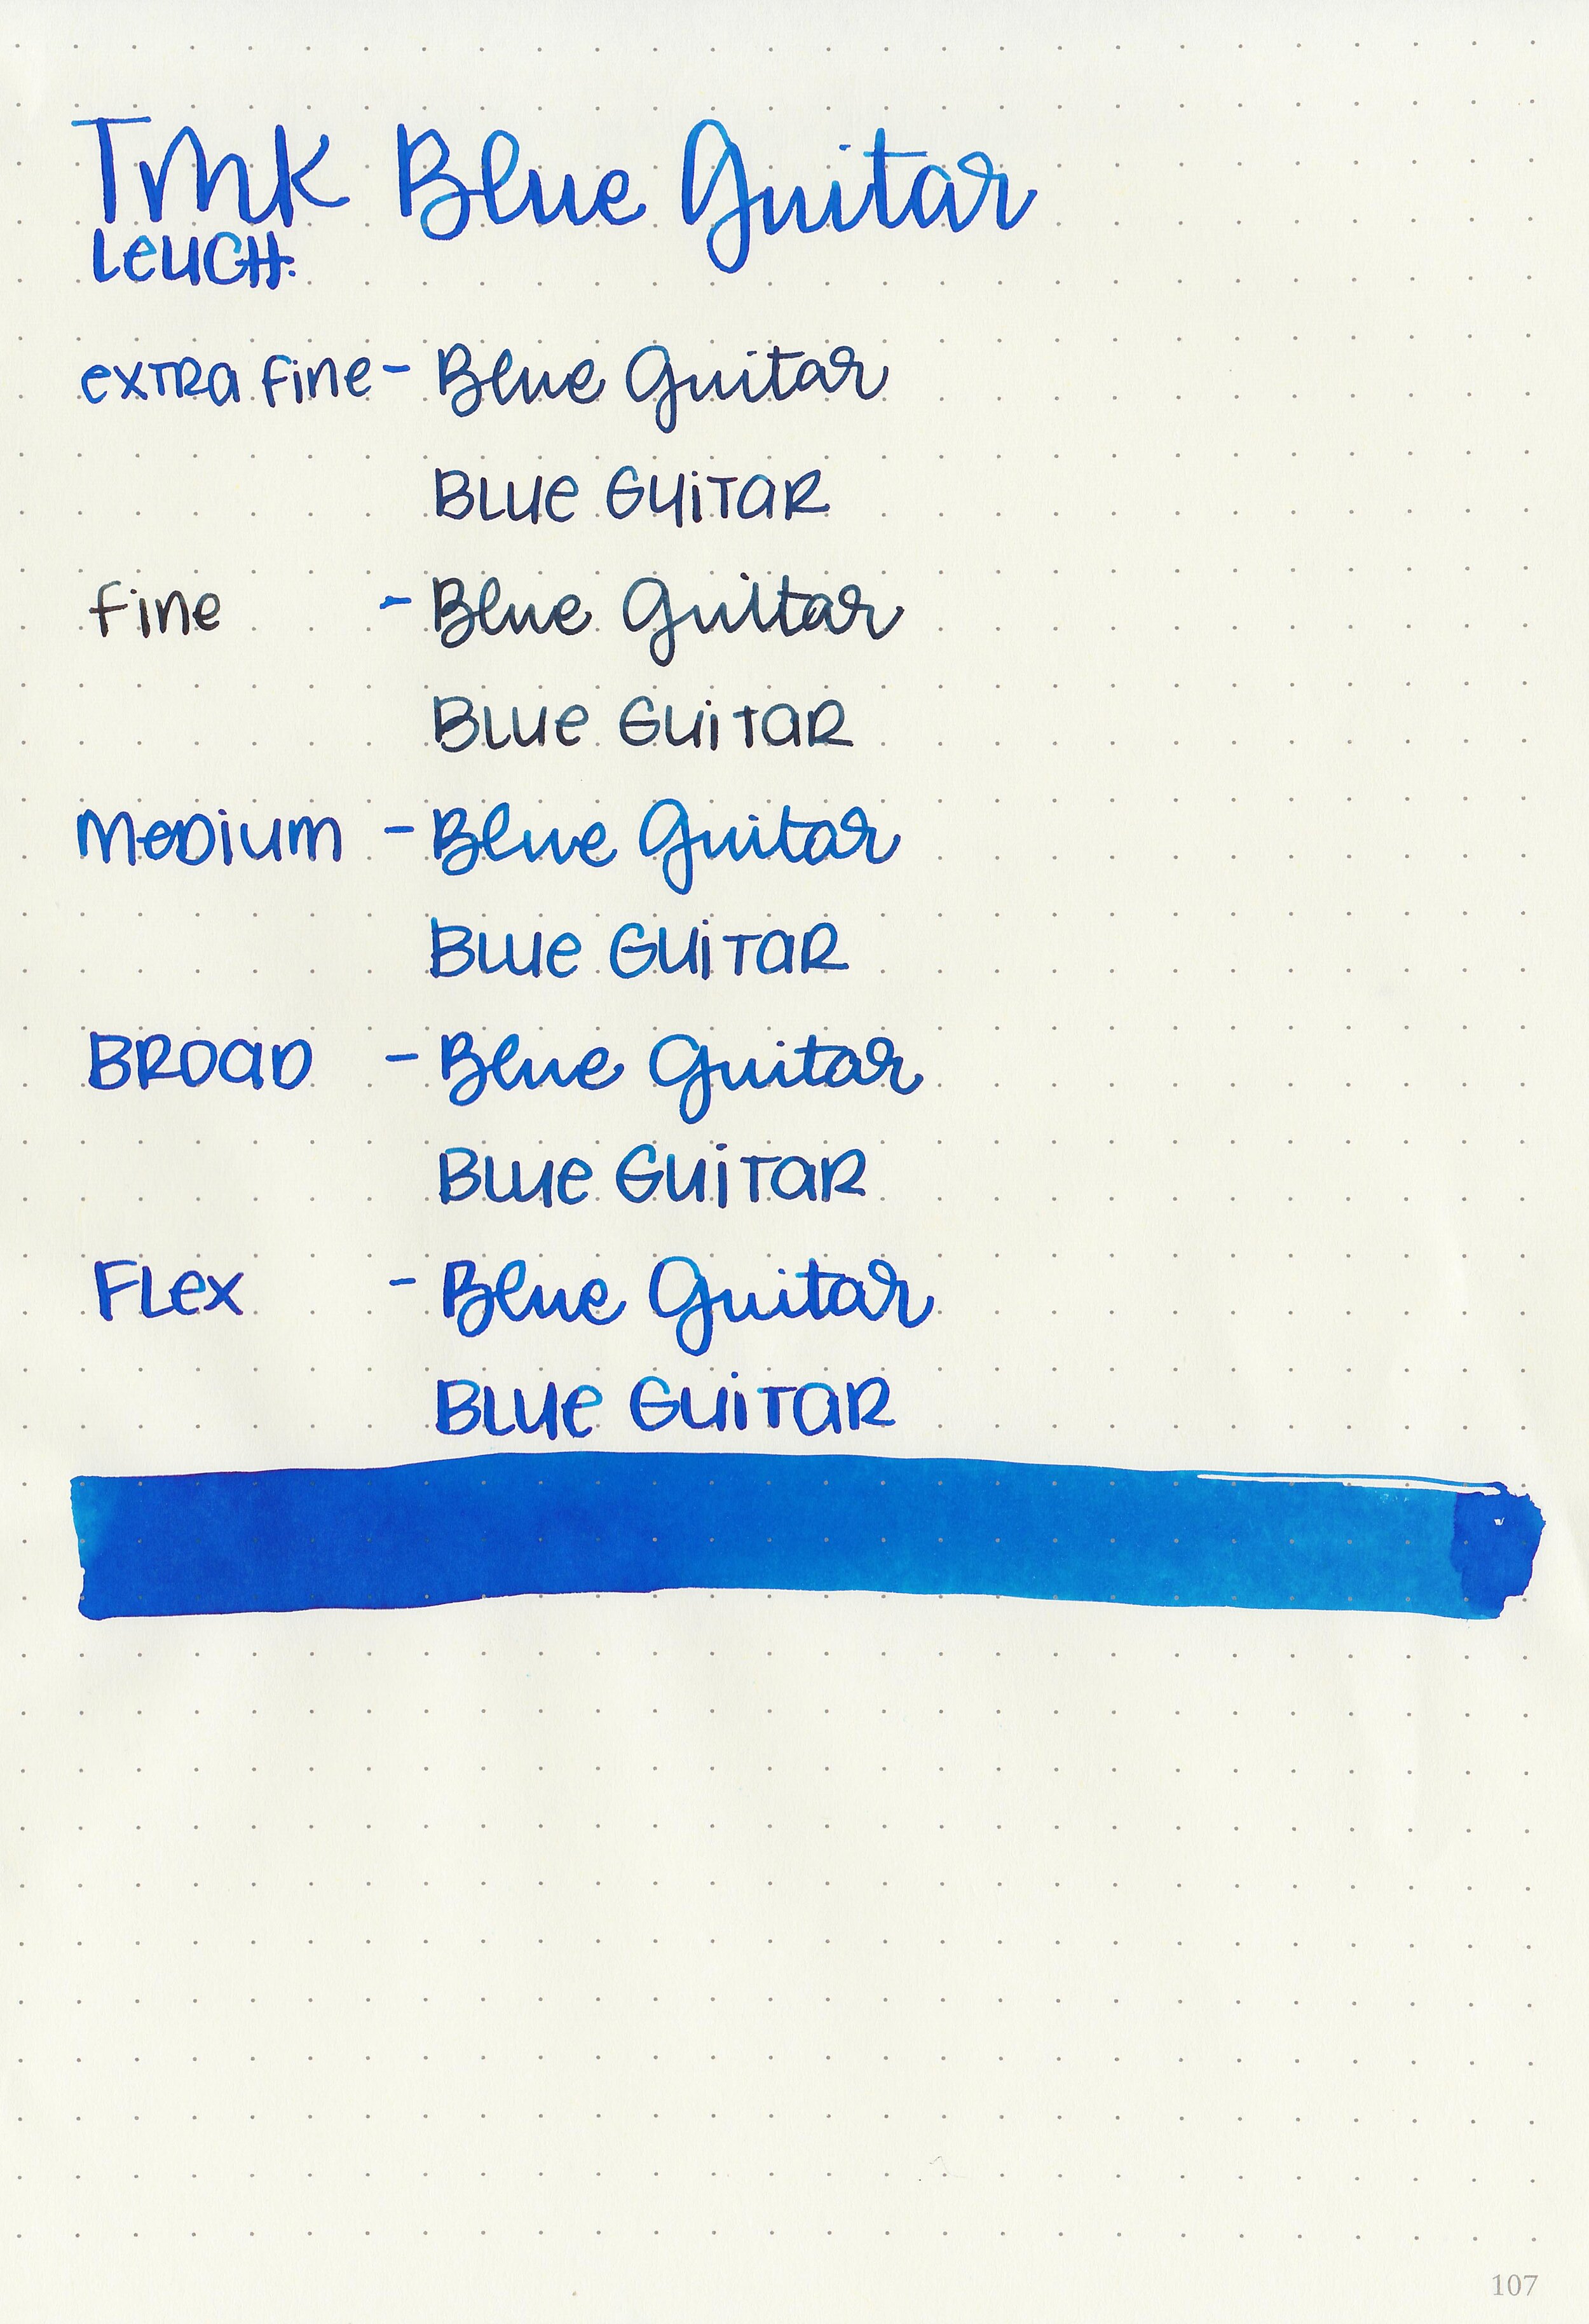 TMK Blue Guitar
Leuch.
extra fine - Blue Guitar
Blue Guitar
fine - Blue Guitar
Blue Guitar
Medium - Blue Guitar
Blue Guitar
Broad - Blue Guitar
Blue Guitar
Flex - Blue Guitar
Blue Guitar
107